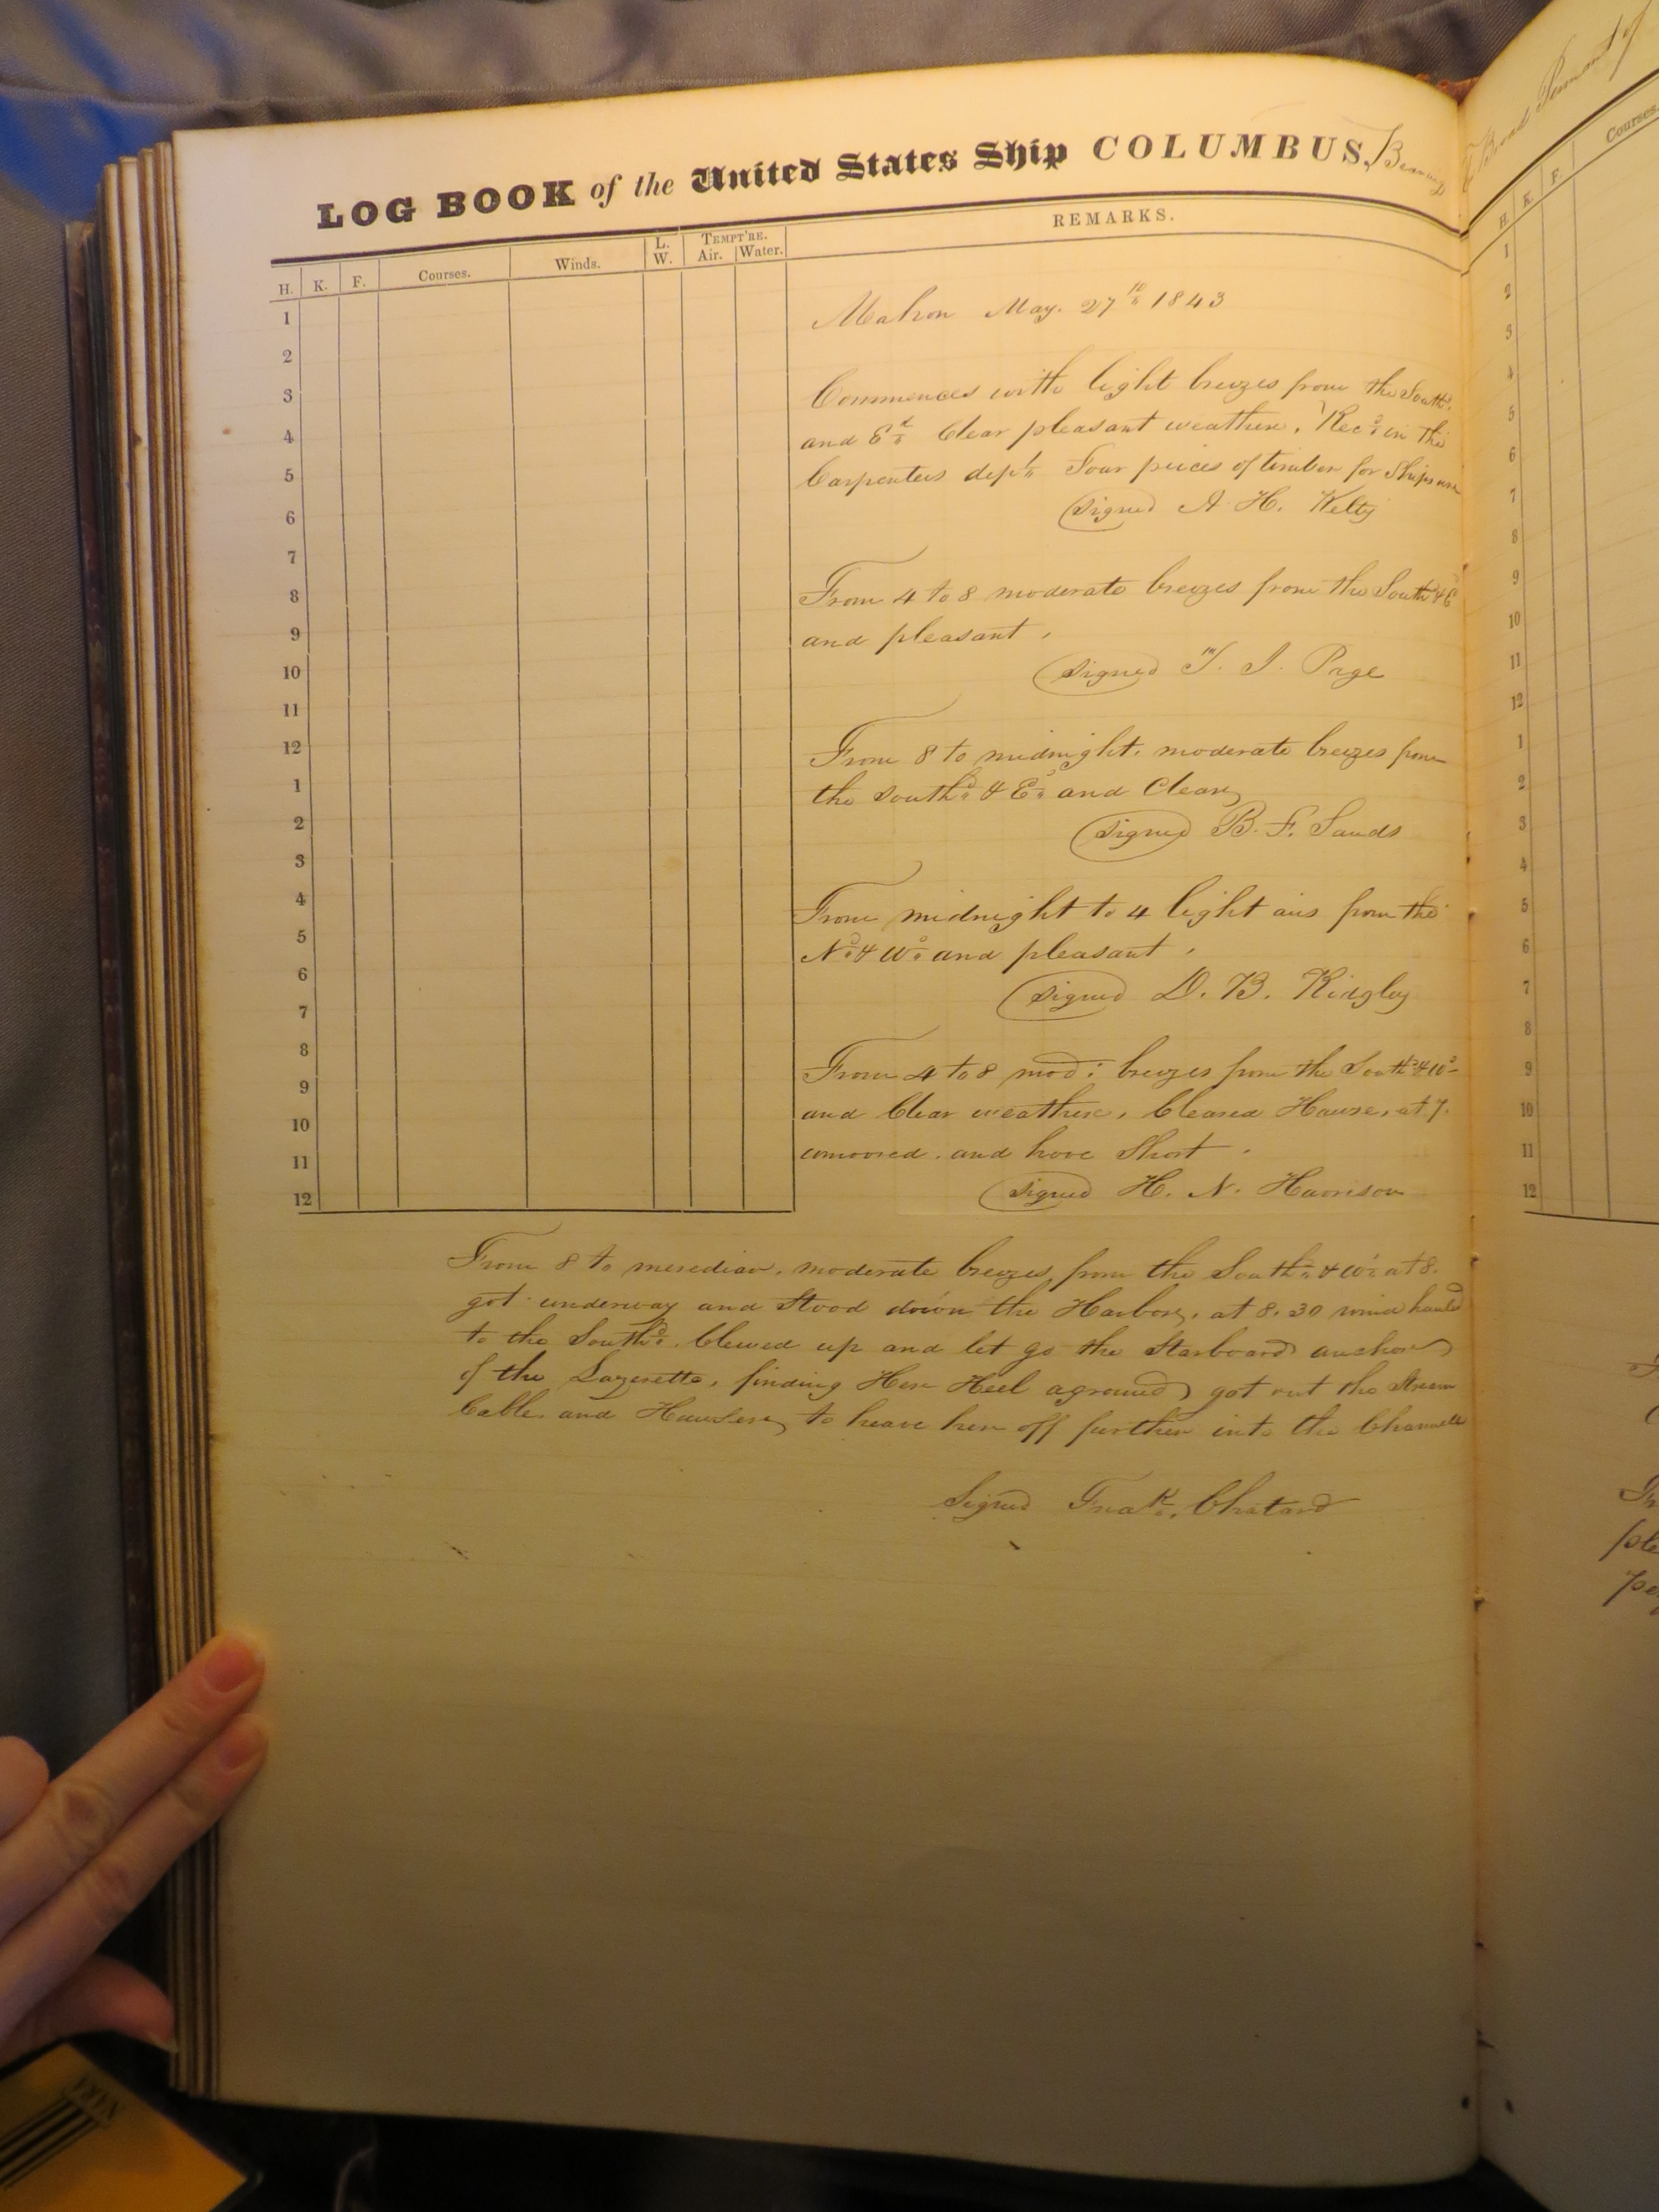 LOG BOOK of the United States Ship COLUMBUS, Bearing
H. K. F. Courses. Winds. L. W. TEMPT'RE. Air. Water. REMARKS.
1
2
3
4
5
6
7
8
9
10
11
12
1
2
3
4
5
6
7
8
9
10
11
12
Mahon May. 27th 1843
Commences with light breezes from the Southd.
and Ed Clear pleasant weather. Recd in the
Carpenters dept Four pieces of timber for Ships use
Signed A. H. Kelty
From 4 to 8 moderate breezes from the Southd & Ed
and pleasant.
Signed T. J. Page
From 8 to midnight. moderate breezes from
the Southd & Ed and Clear
Signed B. F. Sands
From midnight to 4 light airs from the
Nd & Wd and pleasant.
Signed D. B. Ridgley
From 4 to 8 mod: breezes from the Southd & Wd
and Clear weather, Cleared Hawse, at 7.
unmoored. and hove Short.
Signed H. N. Harrison
From 8 to meredian. moderate breezes from the Southd & Wd at 8.
got underway and Stood down the Harbor, at 8.30 wind hauld
to the Southd. Clewed up and let go the Starboard anchor
of the Lazeretto, finding Her Heel aground got out the Stream
Cable. and Hawsers to heave her off further into the Channell
Signed Fredk. Chatard
Broad Pennant of
H. K. F. Courses.
1
2
3
4
5
6
7
8
9
10
11
12
1
2
3
4
5
6
7
8
9
10
11
12
NARA